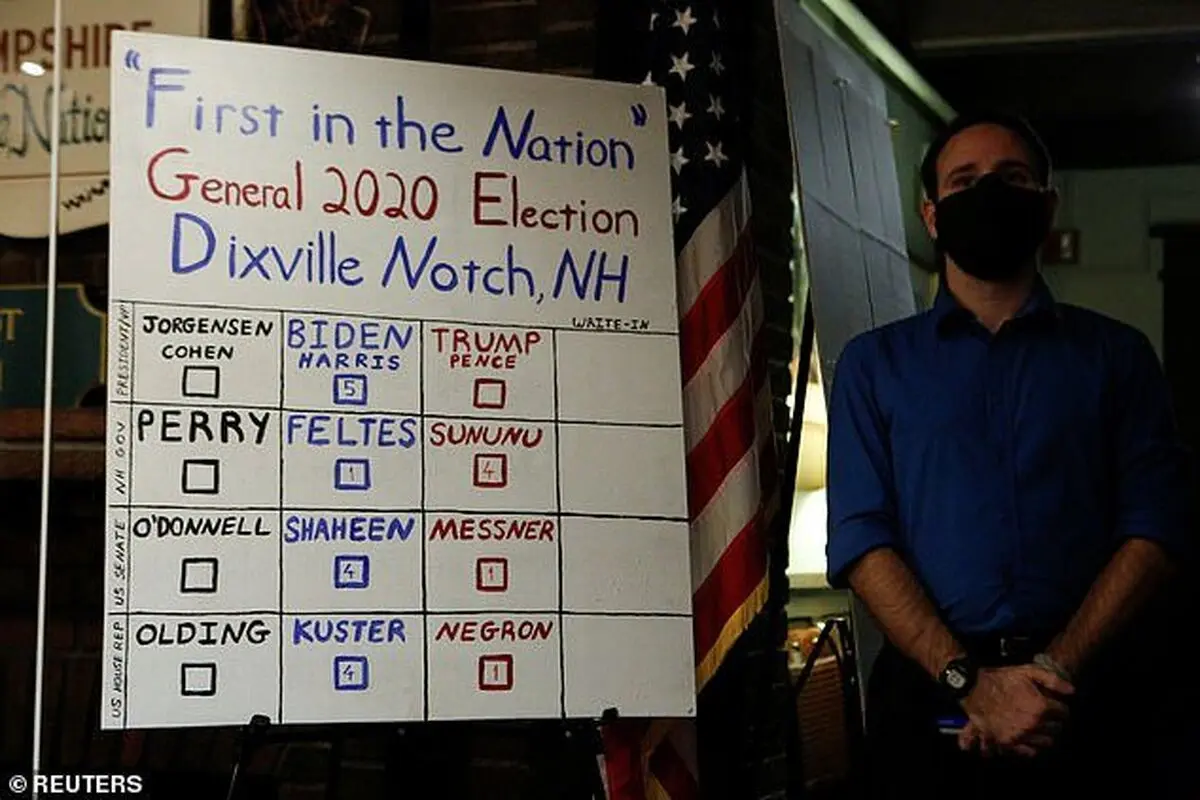 MPSHIRE
"First in the Nation"
General 2020 Election
Dixville Notch, NH
WRITE-IN
PRESIDENT/VP
JORGENSEN
COHEN
BIDEN
HARRIS
5
TRUMP
PENCE
NH GOV
PERRY
FELTES
1
SUNUNU
4
US SENATE
O'DONNELL
SHAHEEN
4
MESSNER
1
US HOUSE REP
OLDING
KUSTER
4
NEGRON
1
© REUTERS